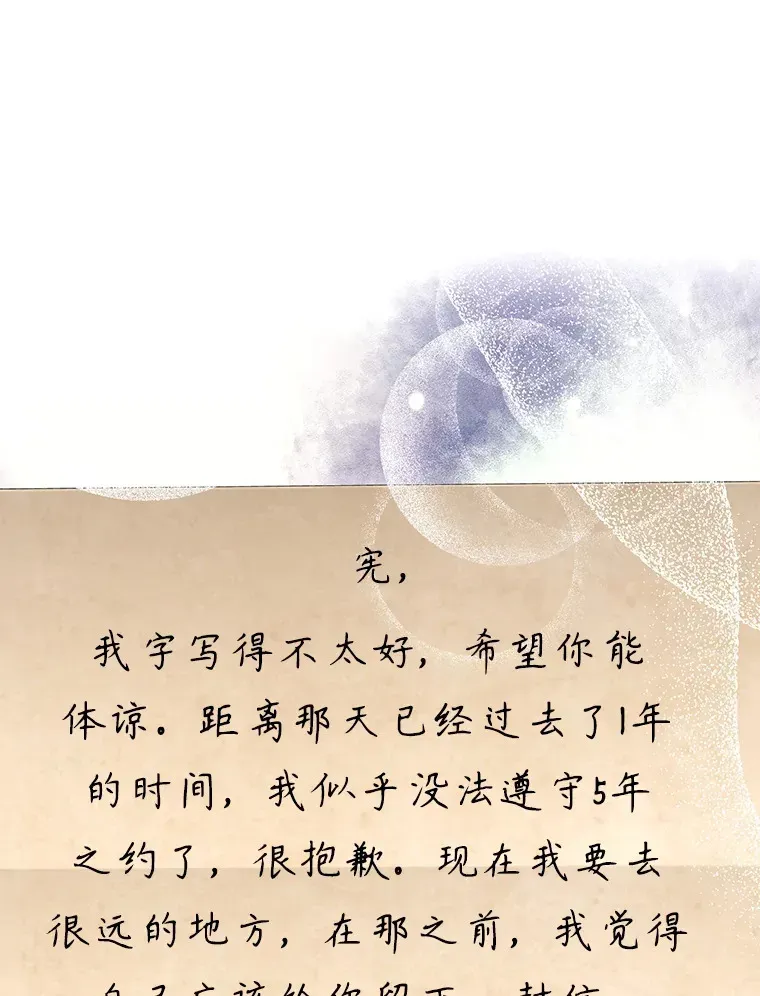 宪，
我字写得不太好，希望你能
体谅。距离那天已经过去了1年
的时间，我似乎没法遵守5年
之约了，很抱歉。现在我要去
很远的地方，在那之前，我觉得
自己应该给你留下一封信。